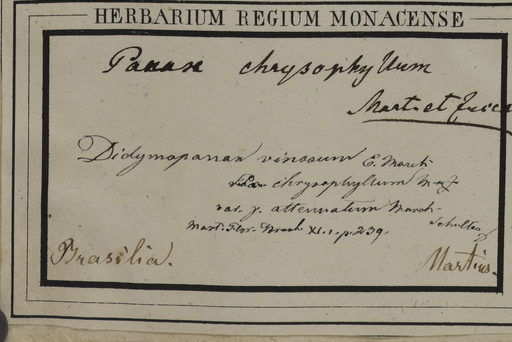 HERBARIUM REGIUM MONACENSE
Panax chrysophyllum
Mart. et Zucc
Didymopanax vinosum E. March.
chrysophyllum
var. γ. attenuatum March.
Mart. Flor. Brasil XI. 1. p. 239. Schultes
Brasilia. Martius.